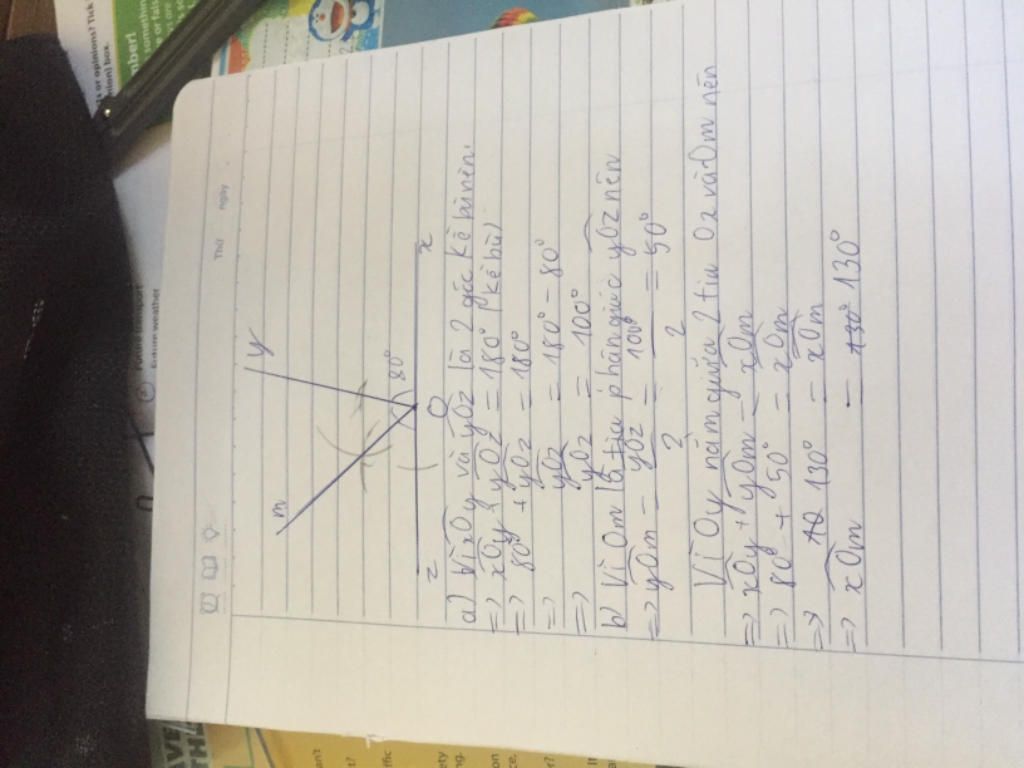 Thứ
ngày
m
y
80°
z
O
x
a) Vì xOy và yOz là 2 góc kề bù nên:
=> xOy + yOz = 180° (kề bù)
=> 80° + yOz = 180°
=> yOz = 180° - 80°
=> yOz = 100°
b) Vì Om là tia phân giác yOz nên
=> yOm = yOz/2 = 100°/2 = 50°
Vì Oy nằm giữa 2 tia Oz và Om nên
=> xOy + yOm = xOm
=> 80° + 50° = xOm
=> 130° = xOm
=> xOm = 130°
Future weather
nber!
something